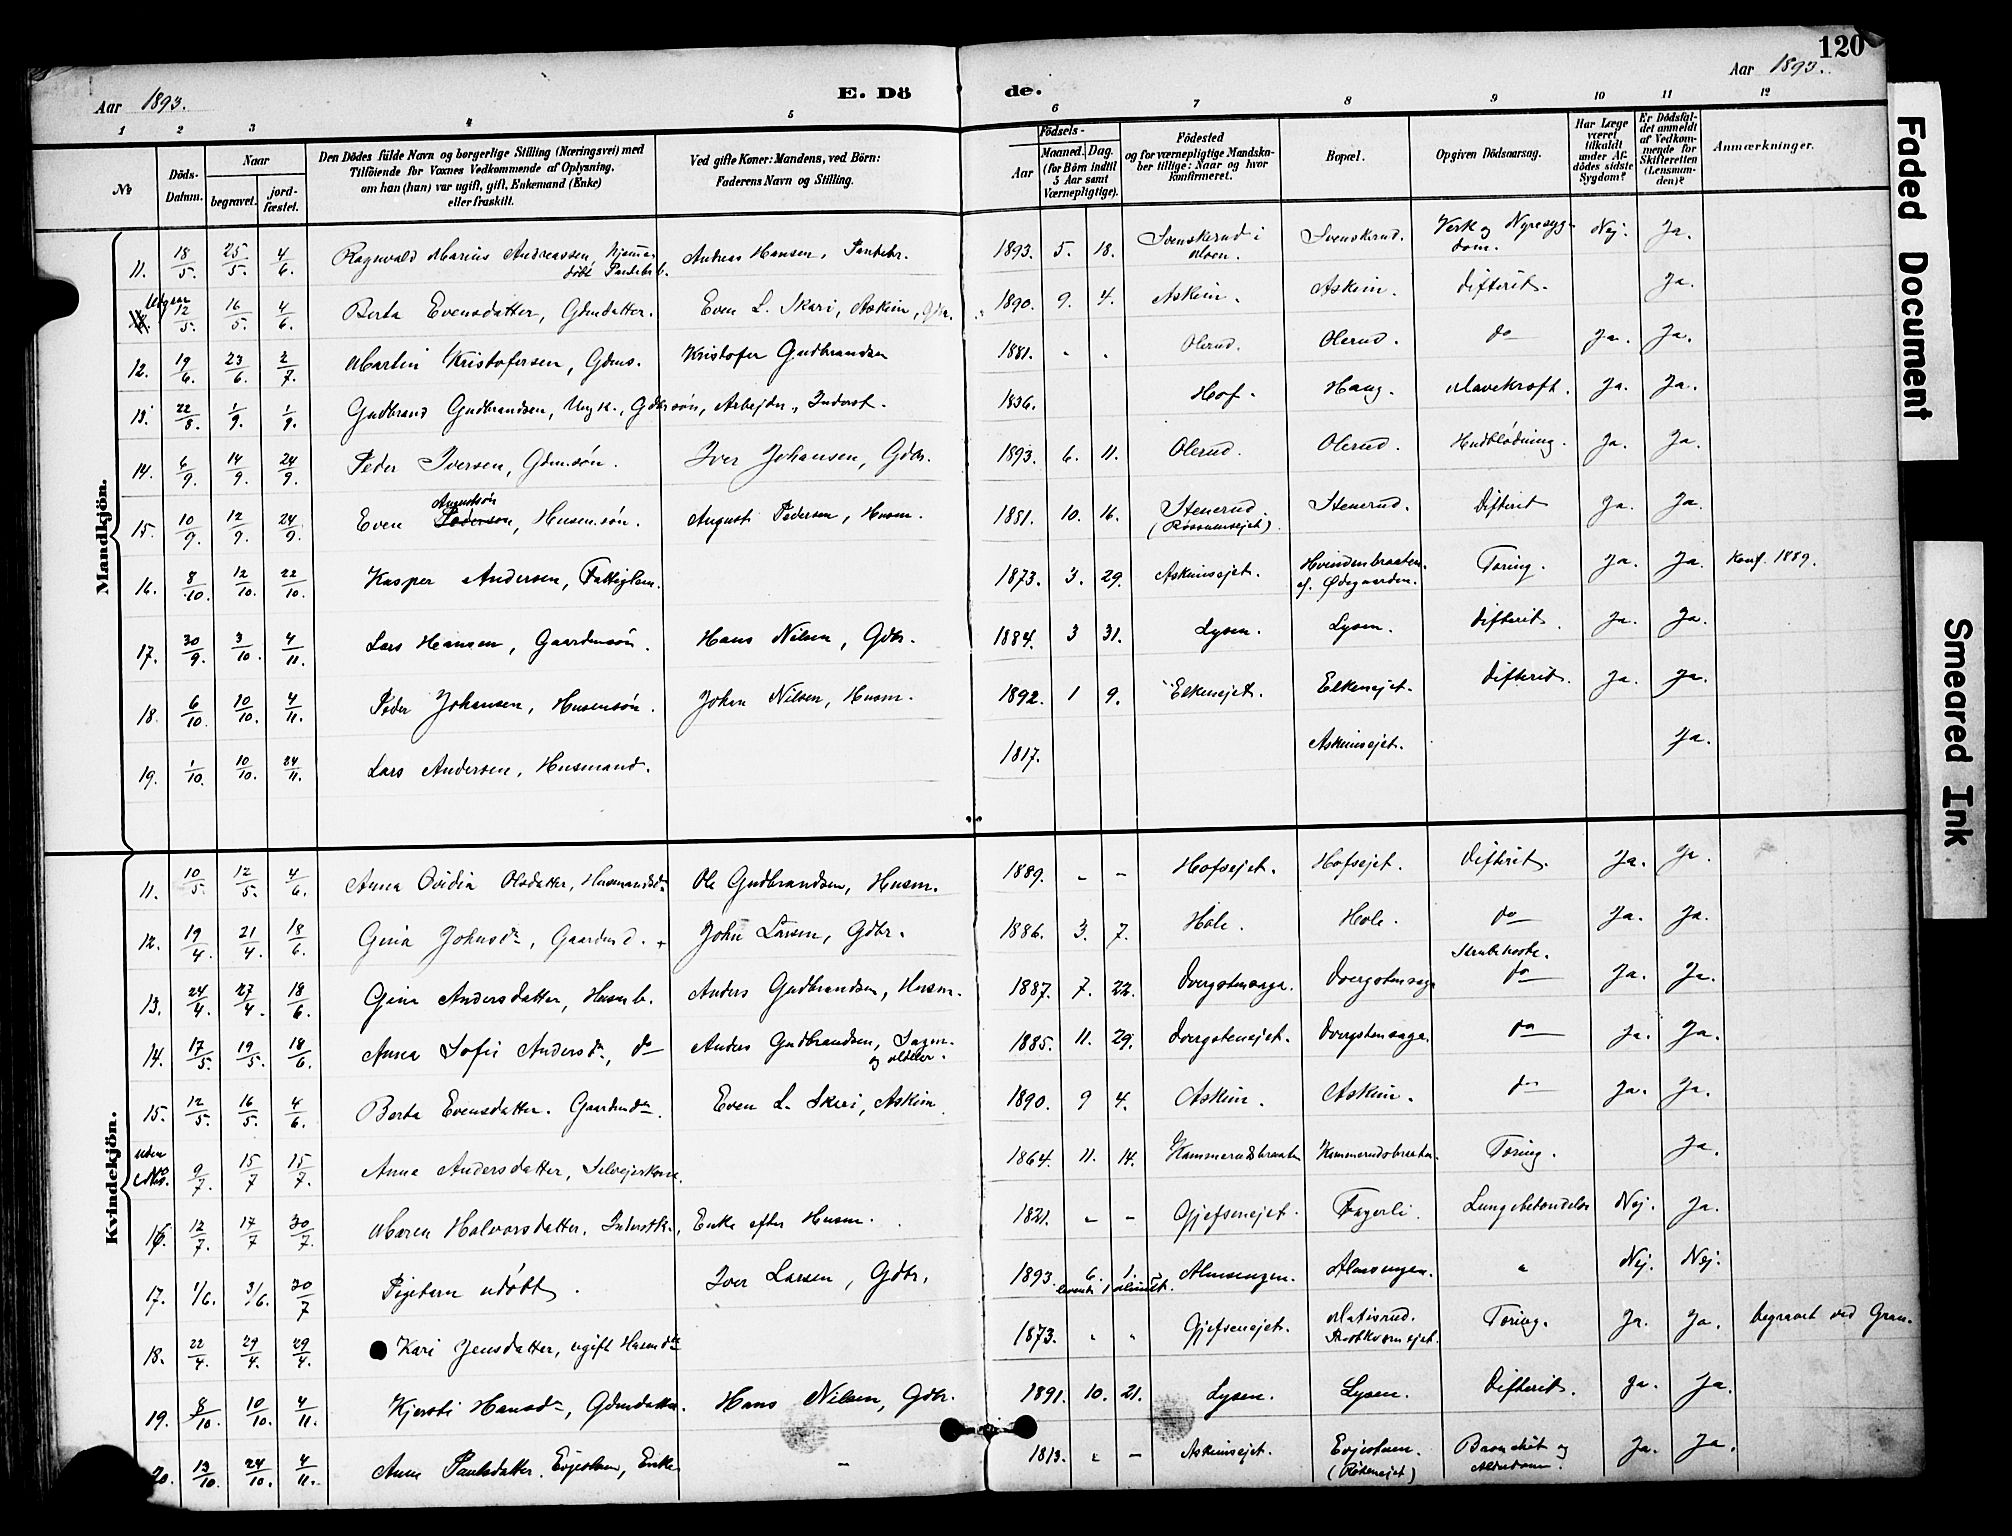 120
Aar 1893.
E. Dö
de.
Aar 1893.
1 2 3 4 5 6 7 8 9 10 11 12
No
Döds-Datum.
Naar
begravet.
jord-fæstet.
Den Dödes fulde Navn og borgerlige Stilling (Næringsvei) med
Tilföiende for Voxnes Vedkommende af Oplysning,
om han (hun) var ugift, gift, Enkemand (Enke)
eller fraskilt.
Ved gifte Koner: Mandens, ved Börn:
Faderens Navn og Stilling.
Födsels-
Aar
Maaned. Dag.
(for Börn indtil
5 Aar samt
Værnepligtige).
Födested
og for værnepligtige Mandska-
ber tillige: Naar og hvor
konfirmeret.
Bopæl.
Opgiven Dödsaarsag.
Har Læge
været
tilkaldt
under Af-
dödes sidste
Sygdom?
Er Dödsfal-
det anmeldt
af Vedkom-
mende for
Skifteretten
(Lensman-
den)?
Anmærkninger.
Mandkjön.
11. 18/5. 25/5. 4/6. Ragnvald Marius Andreassen, Andreas Hansen, 1893. 5. 18. Svenskerud i Svenskerud. Verk og Nyresyg-dom. Nej. Ja.
12/5. 16/5. 4/6. Berta Evensdatter, Gdmdatter. Even L. Skari, Askim, Gdbr. 1890. 9. 4. Askim. Askim. Difterit. Ja.
12. 19/6. 23/6. 2/7. Martin Kristofersen, Gdms. Kristofer Gudbrandsen 1881. " " Olerud. Olerud. do Ja. Ja.
13. 22/8. 1/9. 1/9. Gudbrand Gudbrandsen, Ungk., Gdbrsøn, Arbejder, Inderst. 1836. Hof. Haug. Mavekræft. Ja. Ja.
14. 6/9. 14/9. 24/9. Peder Iversen, Gdmsøn. Iver Johansen, Gdbr. 1893. 6. 11. Olerud. Olerud. Ja. Ja.
15. 10/9. 12/9. 24/9. Even Pedersen, Husmsøn. August Pedersen, Husm. 1881. 10. 16. Stenerud. Stenerud. Difterit Ja. Ja.
16. 8/10. 12/10. 22/10. Kasper Andersen, Fattiglem. 1873. 3. 29. Askimsejet. Tæring. Ja. Ja. Konf. 1889.
17. 30/9. 3/10. 4/11. Lars Hansen, Gaardmsøn. Hans Nilsen, Gdbr. 1884. 3 31. Lysen. Lysen. Difterit. Ja. Ja.
18. 6/10. 10/10. 4/11. Peder Johansen, Husmsøn. Johan Nilsen, Husm. 1892. 1 9. Elkensejet. Elkensejet. Difterit. Ja. Ja.
19. 1/10. 10/10. 24/11. Lars Andersen, Husmand. 1817. Askimsejet. Ja.
Kvindekjön.
11. 10/5. 12/5. 4/6. Anna Ovidia Olsdatter, Husmandsd Ole Gudbrandsen, Husm. 1889. - - Hofsejet. Hofsejet. Difterit. Ja. Ja.
12. 19/4. 21/4. 18/6. Gina Johnsd, Gaardmd. John Larsen, Gdbr. 1886. 3. 7. Hole. Hole. do Ja. Ja.
Strubehoste.
13. 24/4. 27/4. 18/6. Gina Andersdatter, Husmb. Anders Gudbrandsen, Husm. 1887. 7. 22. Dvergstensaga. Dvergstensaga do Ja. Ja.
14. 17/5. 19/5. 18/6. Anna Sofie Andersd, do Anders Gudbrandsen, Sagm. 1885. 11. 29. Dvergstensejet. Dvergstensaga. do Ja. Ja.
15. 12/5. 16/5. 4/6. Berta Evensdatter. Gaardmd. Even L. Skari, Askim 1890. 9 4. Askim. Askim. do Ja. Ja.
uden No. 9/7. 15/7 15/7. Anna Andersdatter, Selvejerkone. 1864. 11. 14. Kammerudsbraaten Kammerudsbraaten. Tæring. Ja.
16. 12/7. 17/7 30/7. Maren Halvorsdatter, Enke efter Husm. 1821. " - Gjefsenejet. Fagerli. Lungebetændelse Nej. Ja.
17. 1/6. 3/6. 30/7 Pigebarn udøbt. Iver Larsen, Gdbr. 1893. 6. 1. Almsengen. Almsengen. " Nej. Nej.
18. 22/4. 29/4. 29/4. Kari Jensdatter, ugift Husmd 1873. " " Gjefsenejet. Tæring. Ja. Ja. begravet ved Gran.
19. 8/10. 10/10. 4/11. Kjersti Hansd, Gdmdatter. Hans Nilsen, Gdbr. 1891. 10. 21. Lysen. Lysen. Difterit. Ja. Ja.
20. 13/10. 24/10. 4/11. Anne Paulsdatter. Enke - 1813. " - Askimsejet. Bronchit og Alderdom. Ja. Ja.
Faded Document
Smeared Ink